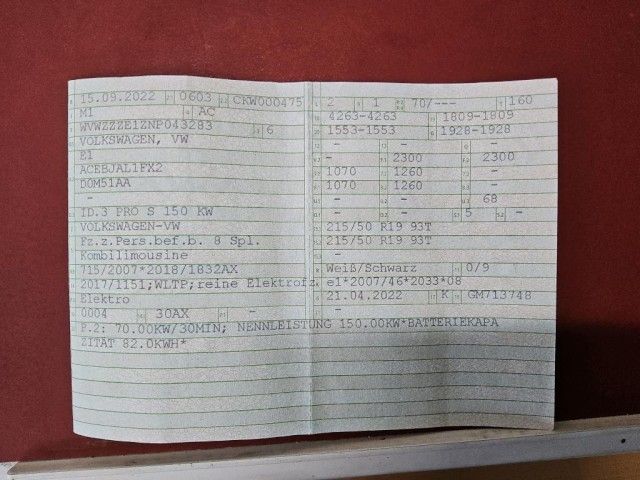 15.09.2022 0603 CKW000475 2 1 70/--- 160
M1 AC 4263-4263 1809-1809
WVWZZZE1ZNP043283 6 1553-1553 1928-1928
VOLKSWAGEN, VW
E1 - 2300 - 2300
ACEBJAL1FX2 1070 1260 -
D0M51AA 1070 1260 -
- - - 68
ID.3 PRO S 150 KW - - 5 -
VOLKSWAGEN-VW 215/50 R19 93T
Fz.z.Pers.bef.b. 8 Spl. 215/50 R19 93T
Kombilimousine
715/2007*2018/1832AX Weiß/Schwarz 0/9
2017/1151;WLTP;reine Elektrofz. e1*2007/46*2033*08
Elektro 21.04.2022 K GM713748
0004 30AX - -
P.2: 70.00KW/30MIN; NENNLEISTUNG 150.00KW*BATTERIEKAPA
ZITÄT 82.0KWH*